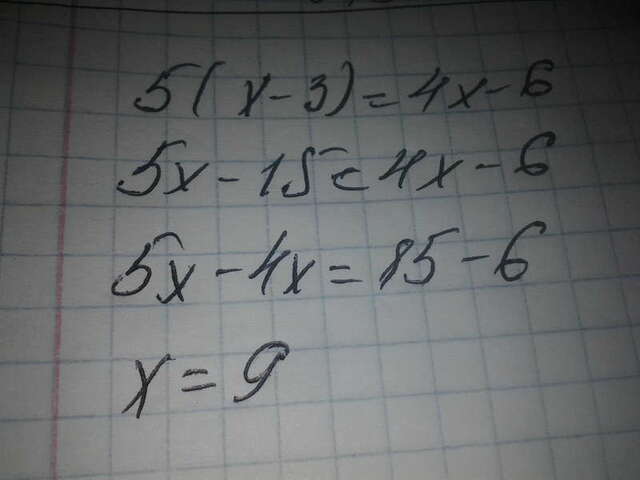 5(x-3)=4x-6
5x-15=4x-6
5x-4x=15-6
x=9